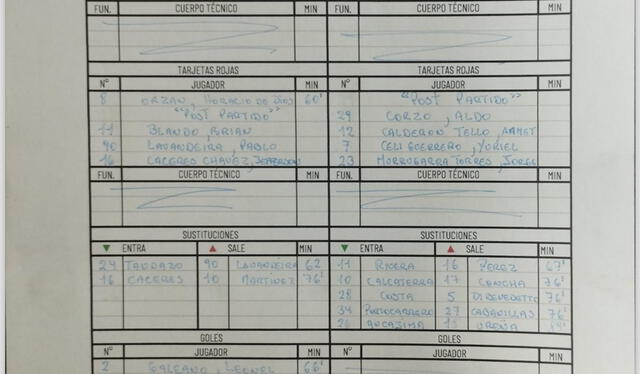 FUN. CUERPO TÉCNICO MIN FUN. CUERPO TÉCNICO MIN
TARJETAS ROJAS TARJETAS ROJAS
Nº JUGADOR MIN Nº JUGADOR MIN
8 ORZAN, HORACIO DE DIOS 60' "POST PARTIDO"
"POST PARTIDO" 29 CORZO, ALDO
11 BLANDO, BRIAN 12 CALDERON TELLO,
90 LAVANDEIRA, PABLO 7 CELI GUERRERO, YURIEL
16 CACERES CHAVEZ, JEFFERSON 23 MURRUGARRA TORRES, JORGE
FUN. CUERPO TÉCNICO MIN FUN. CUERPO TÉCNICO MIN
SUSTITUCIONES SUSTITUCIONES
▼ ENTRA ▲ SALE MIN ▼ ENTRA ▲ SALE MIN
24 90 LAVANDEIRA 62 11 RIVERA 16 PEREZ 67'
16 CACERES 10 MARTINEZ 76' 10 CALCATERRA 17 CONCHA 76'
28 COSTA 5 DI BENEDETTO 76'
34 PORTOCARRERO 27 CABANILLAS 76'
26 ANCAJIMA UREÑA 89'
GOLES GOLES
Nº JUGADOR MIN Nº JUGADOR MIN
2 GALEANO, LEONEL 66'